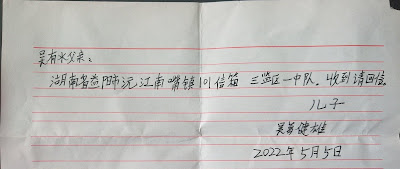 吴有水父亲：
湖南省益阳市沅江南嘴镇101信箱 三监区一中队。收到请回信。
儿子
吴 健雄
2022年5月5日